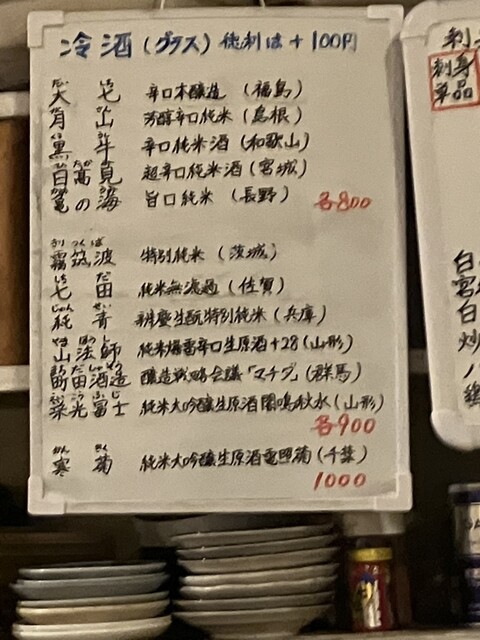 冷酒(グラス) 徳利は+100円
大七 辛口本醸造(福島)
月山 芳醇辛口純米(島根)
黒牛 辛口純米酒(和歌山)
日高見 超辛口純米酒(宮城)
篭の海 旨口純米(長野)
各800
きりつくば
霧筑波 特別純米(茨城)
しちだ
七田 純米無濾過(佐賀)
じゅんせい
純青 辨慶生酛特別純米(兵庫)
やまほうし
山法師 純米爆雷辛口生原酒+28(山形)
町田酒造 醸造戦略会議「マチダ」(群馬)
栄光冨士 純米大吟醸生原酒闇鳴秋水(山形)
各900
かんきく
寒菊 純米大吟醸生原酒電照菊(千葉)
1000
刺身
単品